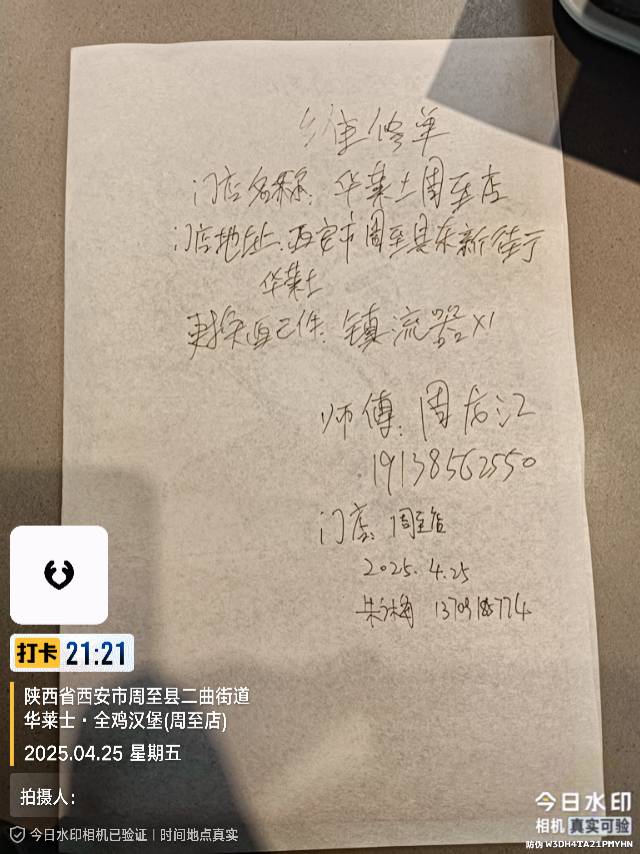 维修单
门店名称：华莱士周至店
门店地址：西安市周至县东新街于
华莱士
更换配件：镇流器X1
师傅：周龙江
19138562550
门店：周至店
2025.4.25
朱
打卡 21:21
陕西省西安市周至县二曲街道
华莱士·全鸡汉堡(周至店)
2025.04.25 星期五
拍摄人：
今日水印相机已验证｜时间地点真实
今日水印
相机 真实可验
防伪 W3DH4TA21PMYHN